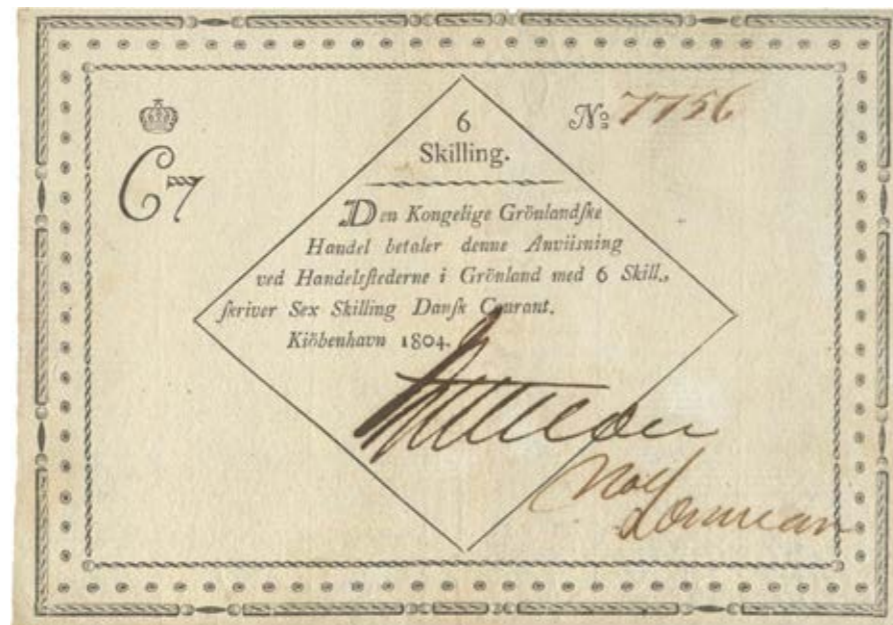 6
Skilling.
No 7756
C7
Den Kongelige Grönlandſke
Handel betaler denne Anviisning
ved Handelsſtederne i Grönland med 6 Skill.,
ſkriver Sex Skilling Danſk Courant.
Kiöbenhavn 1804.